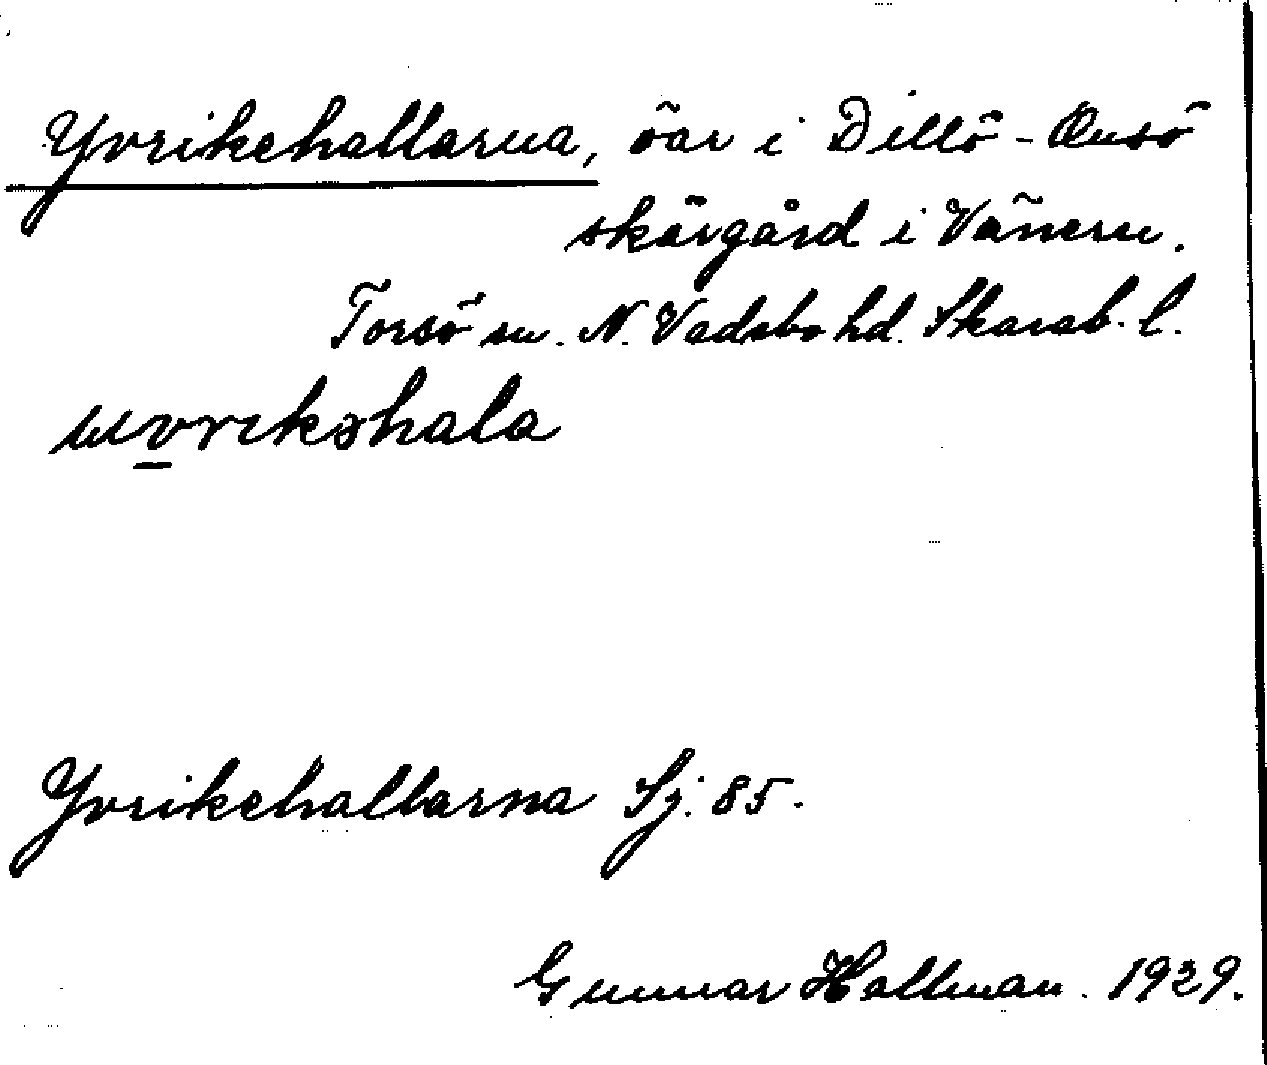 Yvrikehallarna, öar i Dillö-Onsö
skärgård i Vänern.
Torsö sn. N. Vadsbo hd. Skarab. l.
Yvrikehallarna Sj. 85.
Gunnar Hallman. 1929.